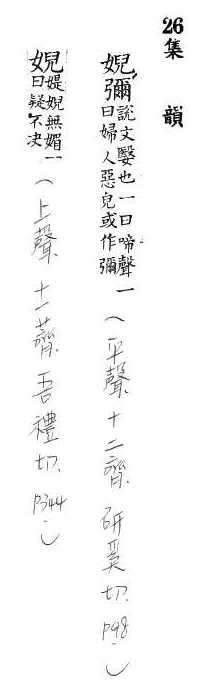 26集 韻
婗㜷說文嫛也一曰啼聲一曰婦人惡皃或作㜷(平聲十二齊.研奚切.p98.)
婗婗媞無媚一曰疑不决(上聲十一薺.吾禮切.p344.)